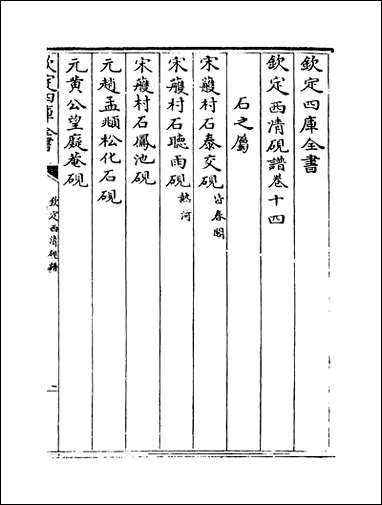 欽定四庫全書
欽定西清硯譜卷十四
石之屬
宋𧃲村石泰交硯 皆春閣
宋𧃲村石聽雨硯 熱河
宋𧃲村石鳳池硯
元趙孟頫松化石硯
元黃公望癡菴硯
欽定四庫全書
欽定西清硯譜